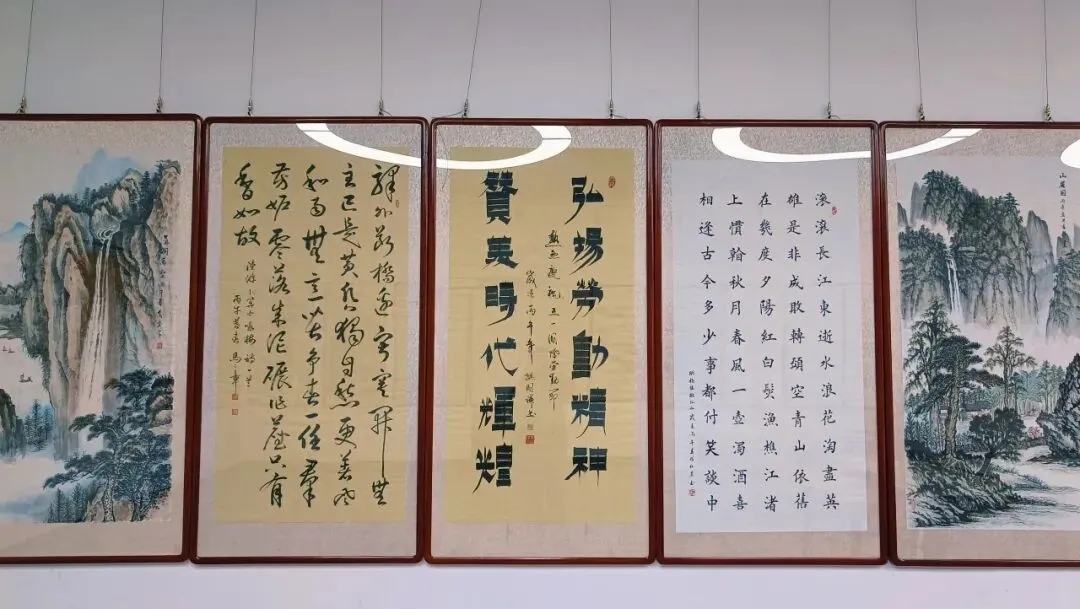 驛外斷橋邊寂寞開無
主已是黃昏獨自愁更著风
和雨無意苦争春一任群
芳妒零落成泥碾作塵只有
香如故
陸游卜算子咏梅詞一首
丙午暮春
弘揚勞動精神
熱烈慶祝五一國際勞動節
丙午年
贊美時代輝煌
滾滾長江東逝水浪花淘盡英
雄是非成敗轉頭空青山依舊
在幾度夕陽紅白髮漁樵江渚
上慣看秋月春風一壺濁酒喜
相逢古今多少事都付笑談中